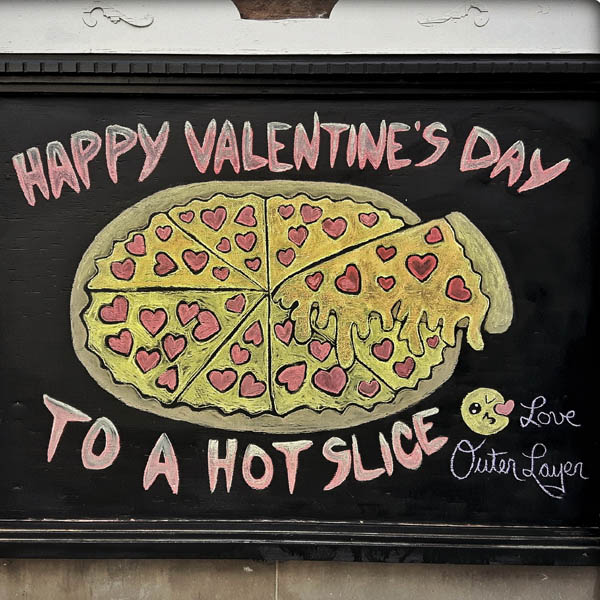 HAPPY VALENTINE'S DAY
TO A HOT SLICE
Love
Outer Layer